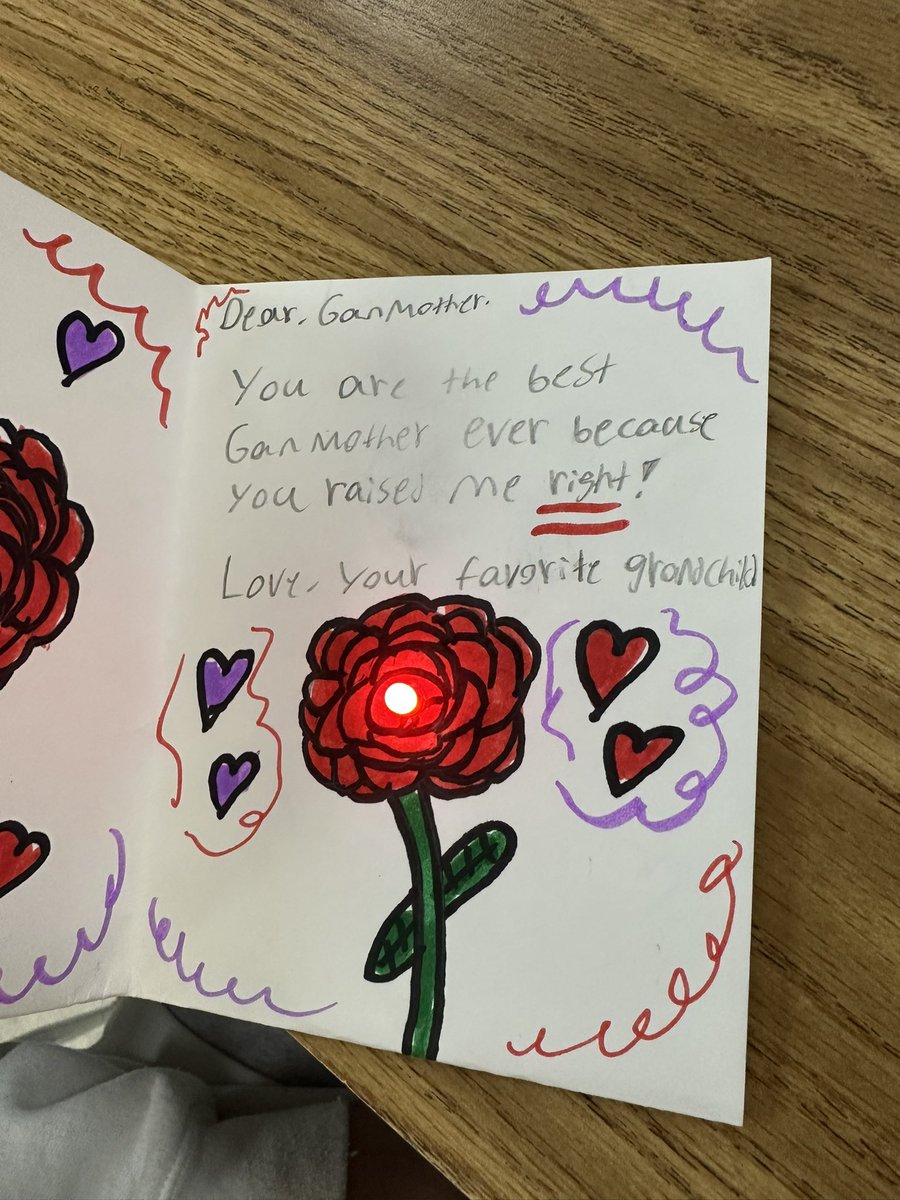 Dear, GanMother.
You are the best
GanMother ever because
you raised me right!
Love, your favorite grandchild